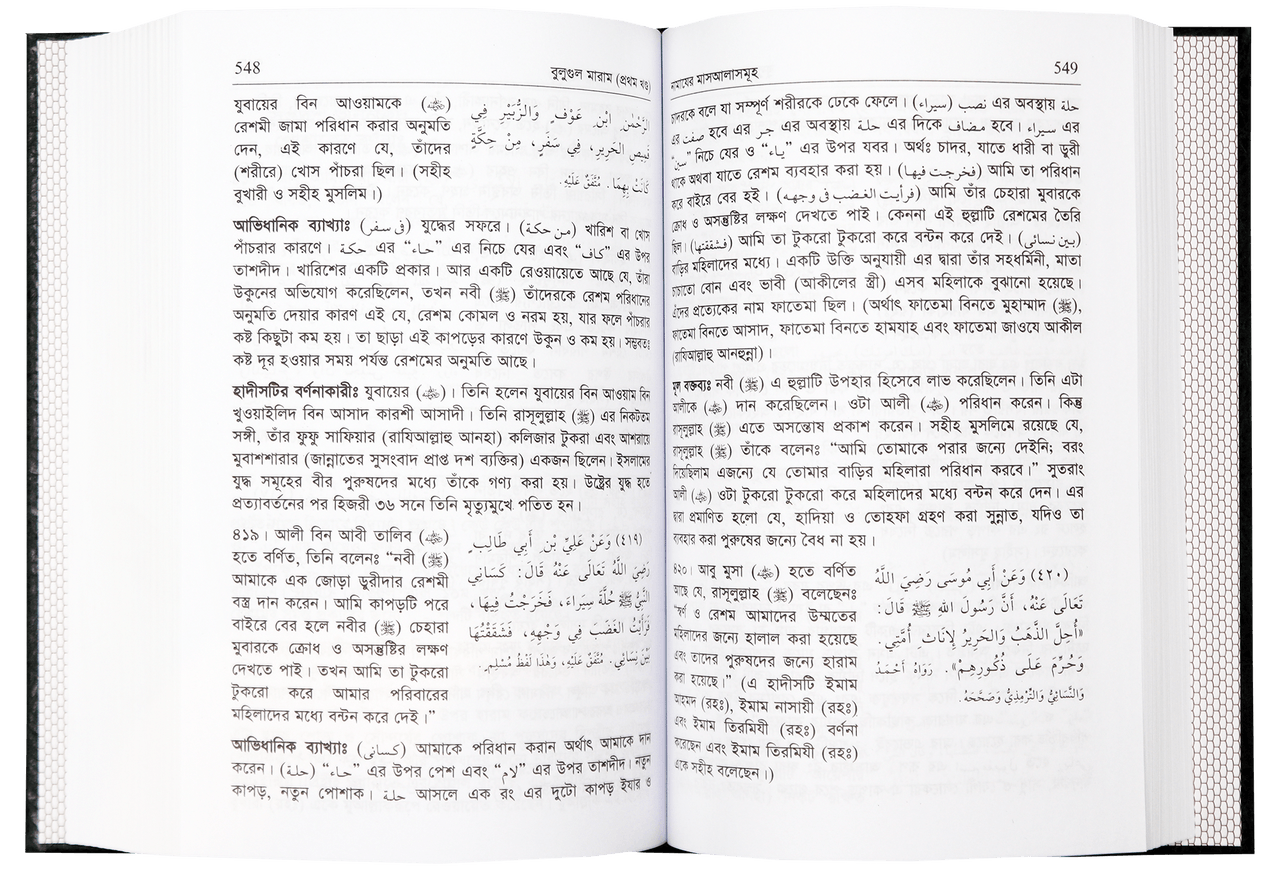 548
বুলুগুল মারাম (প্রথম খণ্ড)
যুবায়ের বিন আওয়ামকে (ﷺ)
রেশমী জামা পরিধান করার অনুমতি
দেন, এই কারণে যে, তাঁদের
(শরীরে) খোস পাঁচরা ছিল। (সহীহ
বুখারী ও সহীহ মুসলিম।)
الرَّحْمٰنِ ابْنِ عَوْفٍ وَالزُّبَيْرِ فِي
قَمِيصِ الْحَرِيرِ، فِي سَفَرٍ، مِنْ حِكَّةٍ
كَانَتْ بِهِمَا. مُتَّفَقٌ عَلَيْهِ.
আভিধানিক ব্যাখ্যাঃ (فى سفر) যুদ্ধের সফরে। (من حكة) খারিশ বা খোস
পাঁচরার কারণে। حكة এর “حاء” এর নিচে যের এবং “كاف” এর উপর
তাশদীদ। খারিশের একটি প্রকার। আর একটি রেওয়ায়েতে আছে যে, তাঁরা
উকুনের অভিযোগ করেছিলেন, তখন নবী (ﷺ) তাঁদেরকে রেশম পরিধানের
অনুমতি দেয়ার কারণ এই যে, রেশম কোমল ও নরম হয়, যার ফলে পাঁচরার
কষ্ট কিছুটা কম হয়। তা ছাড়া এই কাপড়ের কারণে উকুন ও কম হয়। সম্ভবতঃ
কষ্ট দূর হওয়ার সময় পর্যন্ত রেশমের অনুমতি আছে।
হাদীসটির বর্ণনাকারীঃ যুবায়ের (ﷺ)। তিনি হলেন যুবায়ের বিন আওয়াম বিন
খুওয়াইলিদ বিন আসাদ কারশী আসাদী। তিনি রাসূলুল্লাহ (ﷺ) এর নিকটতম
সঙ্গী, তাঁর ফুফু সাফিয়ার (রাযিআল্লাহু আনহা) কলিজার টুকরা এবং আশরায়ে
মুবাশশারার (জান্নাতের সুসংবাদ প্রাপ্ত দশ ব্যক্তির) একজন ছিলেন। ইসলামের
যুদ্ধ সমূহের বীর পুরুষদের মধ্যে তাঁকে গণ্য করা হয়। উষ্ট্রের যুদ্ধ হতে
প্রত্যাবর্তনের পর হিজরী ৩৬ সনে তিনি মৃত্যুমুখে পতিত হন।
৪১৯। আলী বিন আবী তালিব (ﷺ)
হতে বর্ণিত, তিনি বলেনঃ “নবী (ﷺ)
আমাকে এক জোড়া ডুরীদার রেশমী
বস্ত্র দান করেন। আমি কাপড়টি পরে
বাইরে বের হলে নবীর (ﷺ) চেহারা
মুবারকে ক্রোধ ও অসন্তুষ্টির লক্ষণ
দেখতে পাই। তখন আমি তা টুকরো
টুকরো করে আমার পরিবারের
মহিলাদের মধ্যে বন্টন করে দেই।”
(٤١٩) وَعَنْ عَلِيِّ بْنِ أَبِي طَالِبٍ
رَضِيَ اللَّهُ تَعَالَى عَنْهُ قَالَ: كَسَانِي
النَّبِيُّ ﷺ حُلَّةً سِيَرَاءَ، فَخَرَجْتُ فِيهَا،
فَرَأَيْتُ الْغَضَبَ فِي وَجْهِهِ، فَشَقَقْتُهَا
بَيْنَ نِسَائِي. مُتَّفَقٌ عَلَيْهِ، وَهٰذَا لَفْظُ مُسْلِمٍ.
আভিধানিক ব্যাখ্যাঃ (كسانى) আমাকে পরিধান করান অর্থাৎ আমাকে দান
করেন। (حلة) “حاء” এর উপর পেশ এবং “لام” এর উপর তাশদীদ। নতুন
কাপড়, নতুন পোশাক। حلة আসলে এক রং এর দুটো কাপড় ইযার ও
নামাযের মাসআলাসমূহ
549
চাদরকে বলে যা সম্পূর্ণ শরীরকে ঢেকে ফেলে। (سيراء) نصب এর অবস্থায় حلة
এর صفت হবে এর جر এর অবস্থায় حلة এর দিকে مضاف হবে। سيراء এর
“سين” নিচে যের ও “ياء” এর উপর যবর। অর্থঃ চাদর, যাতে ধারী বা ডুরী
থাকে অথবা যাতে রেশম ব্যবহার করা হয়। (فخرجت فيها) আমি তা পরিধান
করে বাইরে বের হই। (فرأيت الغضب فى وجهه) আমি তাঁর চেহারা মুবারকে
ক্রোধ ও অসন্তুষ্টির লক্ষণ দেখতে পাই। কেননা এই হুল্লাটি রেশমের তৈরি
ছিল। (فشققتها) আমি তা টুকরো টুকরো করে বন্টন করে দেই। (بين نسائى)
বাড়ির মহিলাদের মধ্যে। একটি উক্তি অনুযায়ী এর দ্বারা তাঁর সহধর্মিনী, মাতা
চাচাতো বোন এবং ভাবী (আকীলের স্ত্রী) এসব মহিলাকে বুঝানো হয়েছে।
এঁদের প্রত্যেকের নাম ফাতেমা ছিল। (অর্থাৎ ফাতেমা বিনতে মুহাম্মাদ (ﷺ),
ফাতেমা বিনতে আসাদ, ফাতেমা বিনতে হামযাহ এবং ফাতেমা জাওযে আকীল
(রাযিআল্লাহু আনহুন্না)।
মূল বক্তব্যঃ নবী (ﷺ) এ হুল্লাটি উপহার হিসেবে লাভ করেছিলেন। তিনি এটা
আলীকে (ﷺ) দান করেছিলেন। ওটা আলী (ﷺ) পরিধান করেন। কিন্তু
রাসূলুল্লাহ (ﷺ) এতে অসন্তোষ প্রকাশ করেন। সহীহ মুসলিমে রয়েছে যে,
রাসূলুল্লাহ (ﷺ) তাঁকে বলেনঃ “আমি তোমাকে পরার জন্যে দেইনি; বরং
দিয়েছিলাম এজন্যে যে তোমার বাড়ির মহিলারা পরিধান করবে।” সুতরাং
আলী (ﷺ) ওটা টুকরো টুকরো করে মহিলাদের মধ্যে বন্টন করে দেন। এর
দ্বারা প্রমাণিত হলো যে, হাদিয়া ও তোহফা গ্রহণ করা সুন্নাত, যদিও তা
ব্যবহার করা পুরুষের জন্যে বৈধ না হয়।
৪২০। আবু মুসা (ﷺ) হতে বর্ণিত
আছে যে, রাসূলুল্লাহ (ﷺ) বলেছেনঃ
“স্বর্ণ ও রেশম আমাদের উম্মতের
মহিলাদের জন্যে হালাল করা হয়েছে
এবং তাদের পুরুষদের জন্যে হারাম
করা হয়েছে।” (এ হাদীসটি ইমাম
আহমদ (রহঃ), ইমাম নাসায়ী (রহঃ)
এবং ইমাম তিরমিযী (রহঃ) বর্ণনা
করেছেন এবং ইমাম তিরমিযী (রহঃ)
একে সহীহ বলেছেন।)
(٤٢٠) وَعَنْ أَبِي مُوسَى رَضِيَ اللَّهُ
تَعَالَى عَنْهُ، أَنَّ رَسُولَ اللهِ ﷺ قَالَ:
«أُحِلَّ الذَّهَبُ وَالْحَرِيرُ لِإِنَاثِ أُمَّتِي.
وَحُرِّمَ عَلَى ذُكُورِهِمْ». رَوَاهُ أَحْمَدُ
وَالنَّسَائِيُّ وَالتِّرْمِذِيُّ وَصَحَّحَهُ.